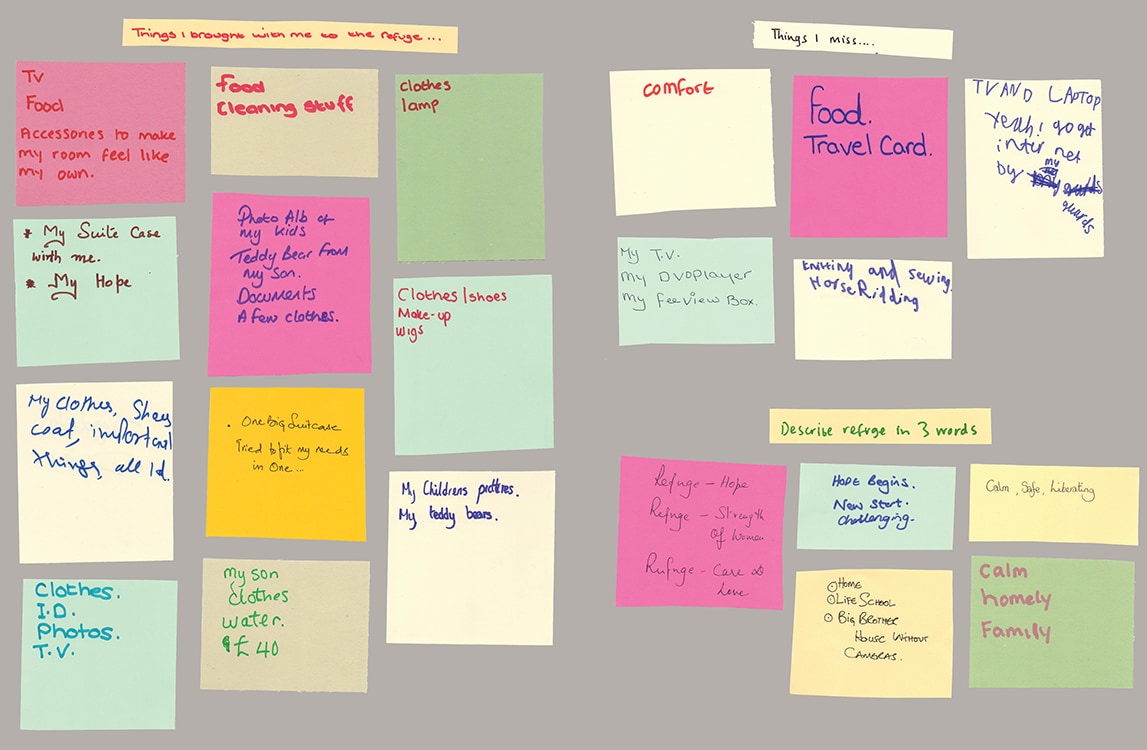 Things I brought with me to the refuge...
Tv
Food
Accessories to make
my room feel like
my own.
* My Suite Case
with me.
* My Hope
My clothes, Shoes
coat, important
things, all Id.
Clothes.
I.D.
Photos.
T.V.
food
Cleaning stuff
Photo Alb of
my kids
Teddy Bear from
my son.
Documents
A few clothes.
. One Big Suitcase
Tried to fit my needs
in One...
my son
clothes
water.
£40
clothes
lamp
Clothes/shoes
Make-up
wigs
My Childrens
My teddy bears.
Things I miss....
comfort
Food.
Travel Card.
TV AND LAPTOP
Yeah! go get
inter net
by my
My T.V.
my DVDplayer
my feeview Box.
knitting and sewing.
Horse Ridding
Describe refuge in 3 words
Refuge - Hope
Refuge - Strength
of women.
Refuge - Care &
Love
HOPE Begins.
New Start.
Challenging.
Calm, Safe, Liberating
HOME
LIFE SCHOOL
BIG BROTHER
HOUSE WITHOUT
CAMERAS.
Calm
homely
Family